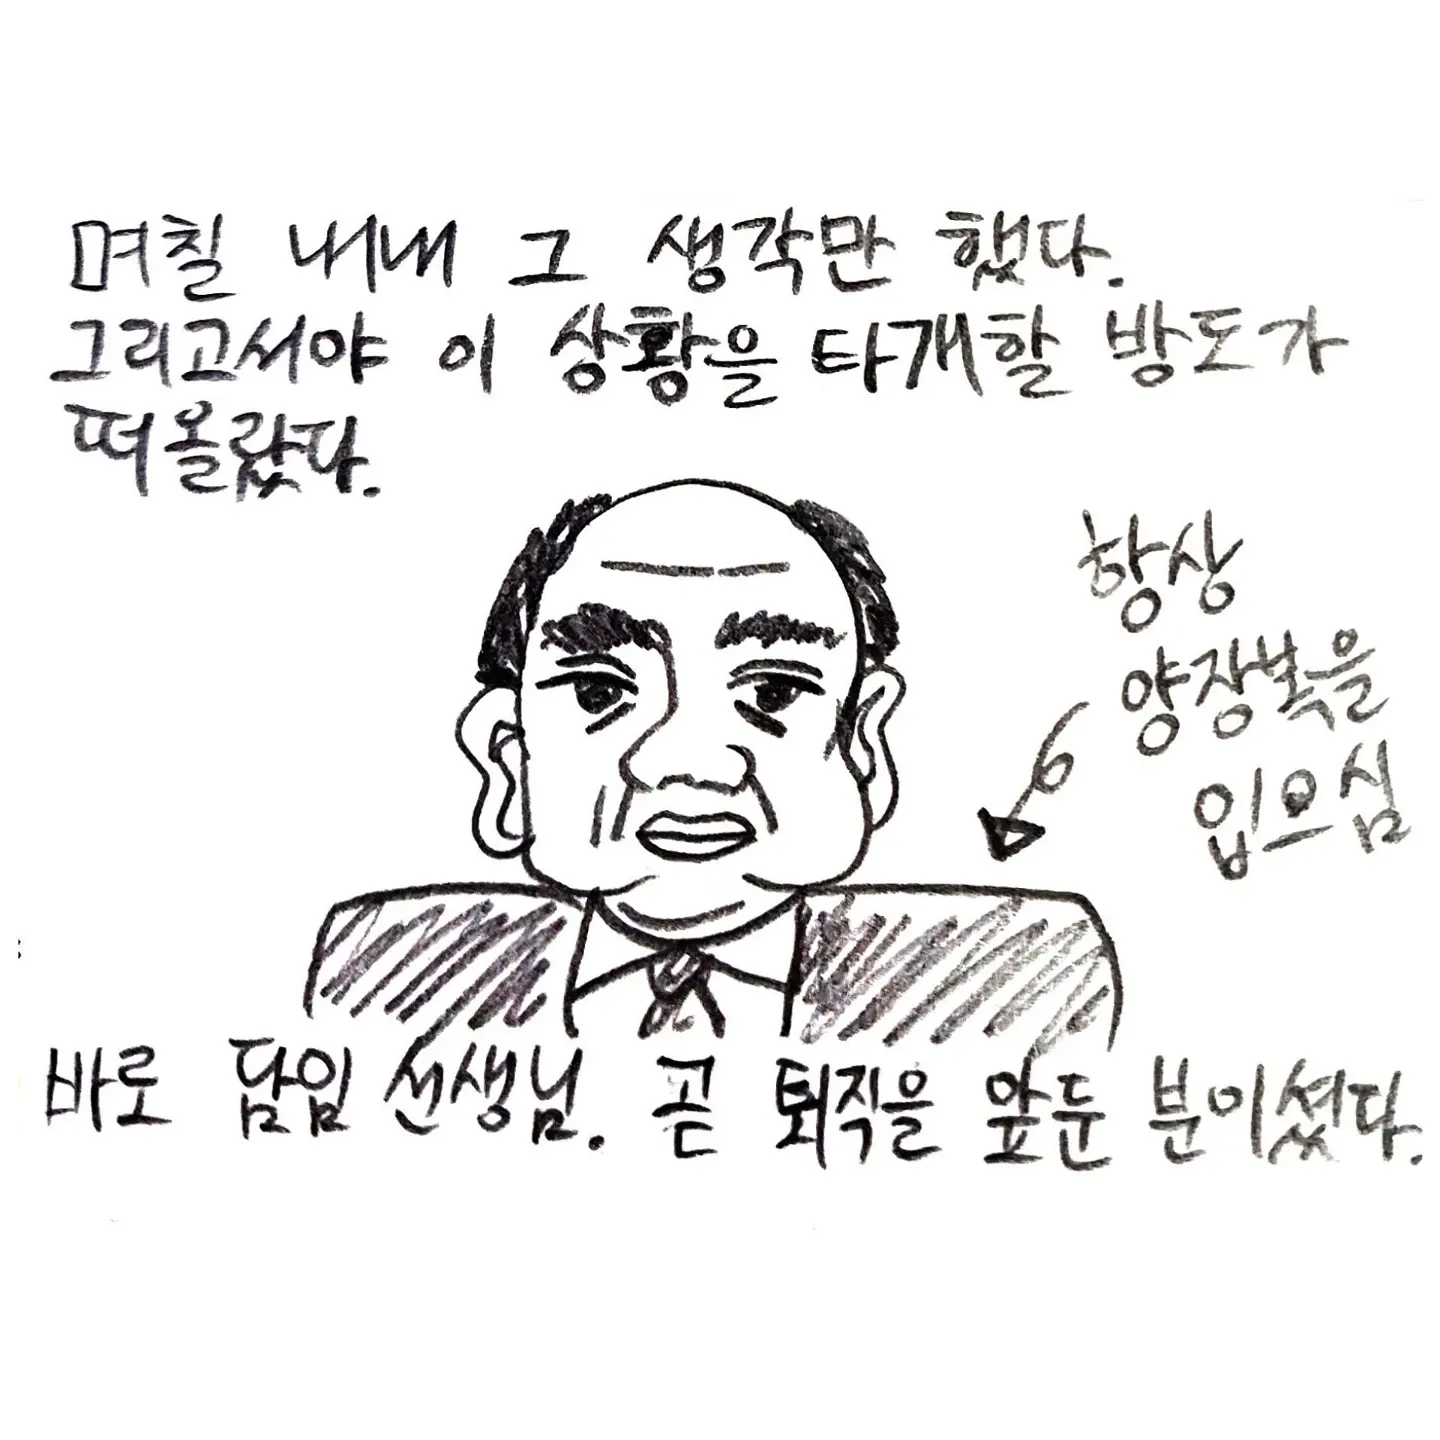 며칠 내내 그 생각만 했다.
그리고서야 이 상황을 타개할 방도가
떠올랐다.
항상
양장복을
입으심
바로 담임 선생님. 곧 퇴직을 앞둔 분이셨다.